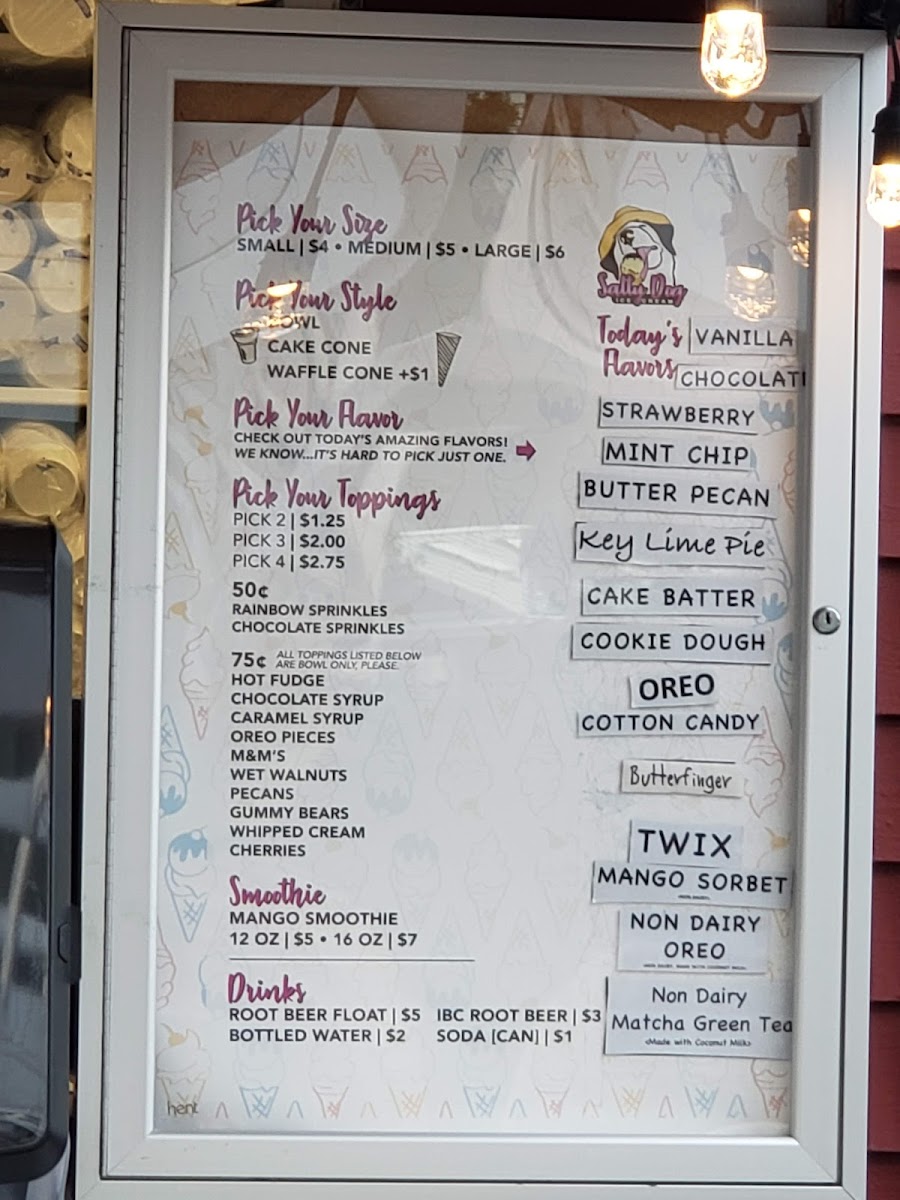 Pick Your Size
SMALL | $4 • MEDIUM | $5 • LARGE | $6
Pick Your Style
BOWL
CAKE CONE
WAFFLE CONE +$1
Pick Your Flavor
CHECK OUT TODAY'S AMAZING FLAVORS!
WE KNOW...IT'S HARD TO PICK JUST ONE.
Pick Your Toppings
PICK 2 | $1.25
PICK 3 | $2.00
PICK 4 | $2.75
50¢
RAINBOW SPRINKLES
CHOCOLATE SPRINKLES
75¢ ALL TOPPINGS LISTED BELOW
ARE BOWL ONLY, PLEASE.
HOT FUDGE
CHOCOLATE SYRUP
CARAMEL SYRUP
OREO PIECES
M&M'S
WET WALNUTS
PECANS
GUMMY BEARS
WHIPPED CREAM
CHERRIES
Smoothie
MANGO SMOOTHIE
12 OZ | $5 • 16 OZ | $7
Drinks
ROOT BEER FLOAT | $5 IBC ROOT BEER | $3
BOTTLED WATER | $2 SODA [CAN] | $1
hent
Salty Dog
ICE CREAM
Today's
Flavors
VANILLA
CHOCOLAT
STRAWBERRY
MINT CHIP
BUTTER PECAN
Key Lime Pie
CAKE BATTER
COOKIE DOUGH
OREO
COTTON CANDY
Butterfinger
TWIX
MANGO SORBET
NON DAIRY
OREO
Non Dairy
Matcha Green Tea
<Made with Coconut Milk>